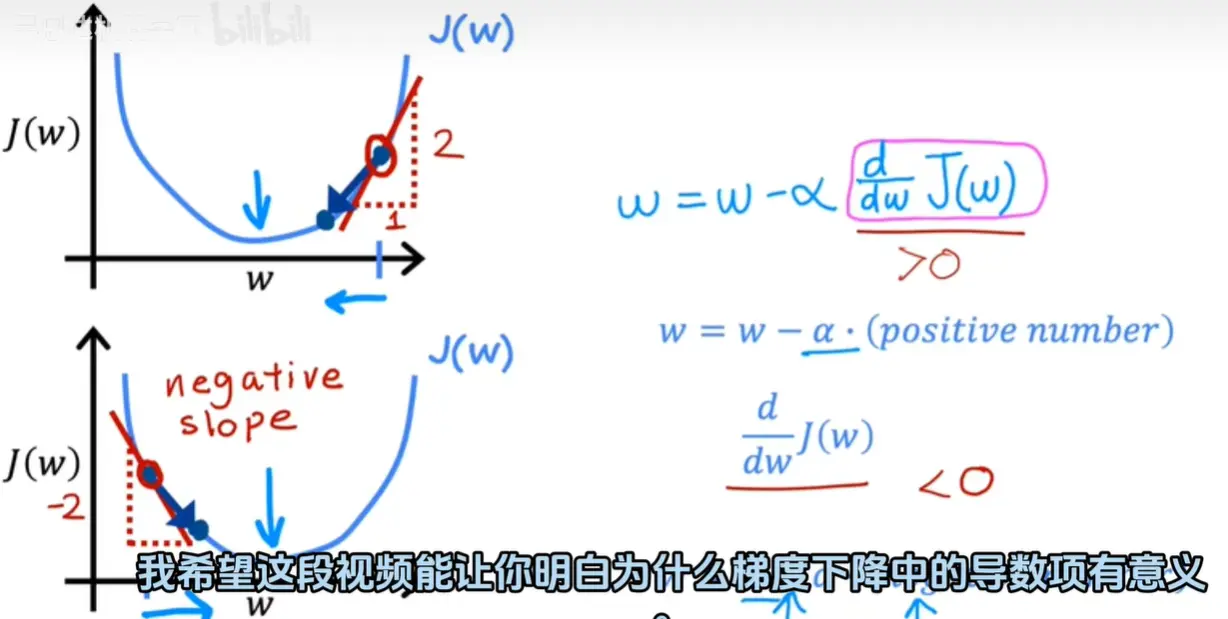 bilibili
J(w)
J(w)
2
1
w
w = w - α d/dw J(w)
>0
w = w - α · (positive number)
J(w)
negative
slope
J(w)
-2
w
d/dw J(w)
<0
我希望这段视频能让你明白为什么梯度下降中的导数项有意义